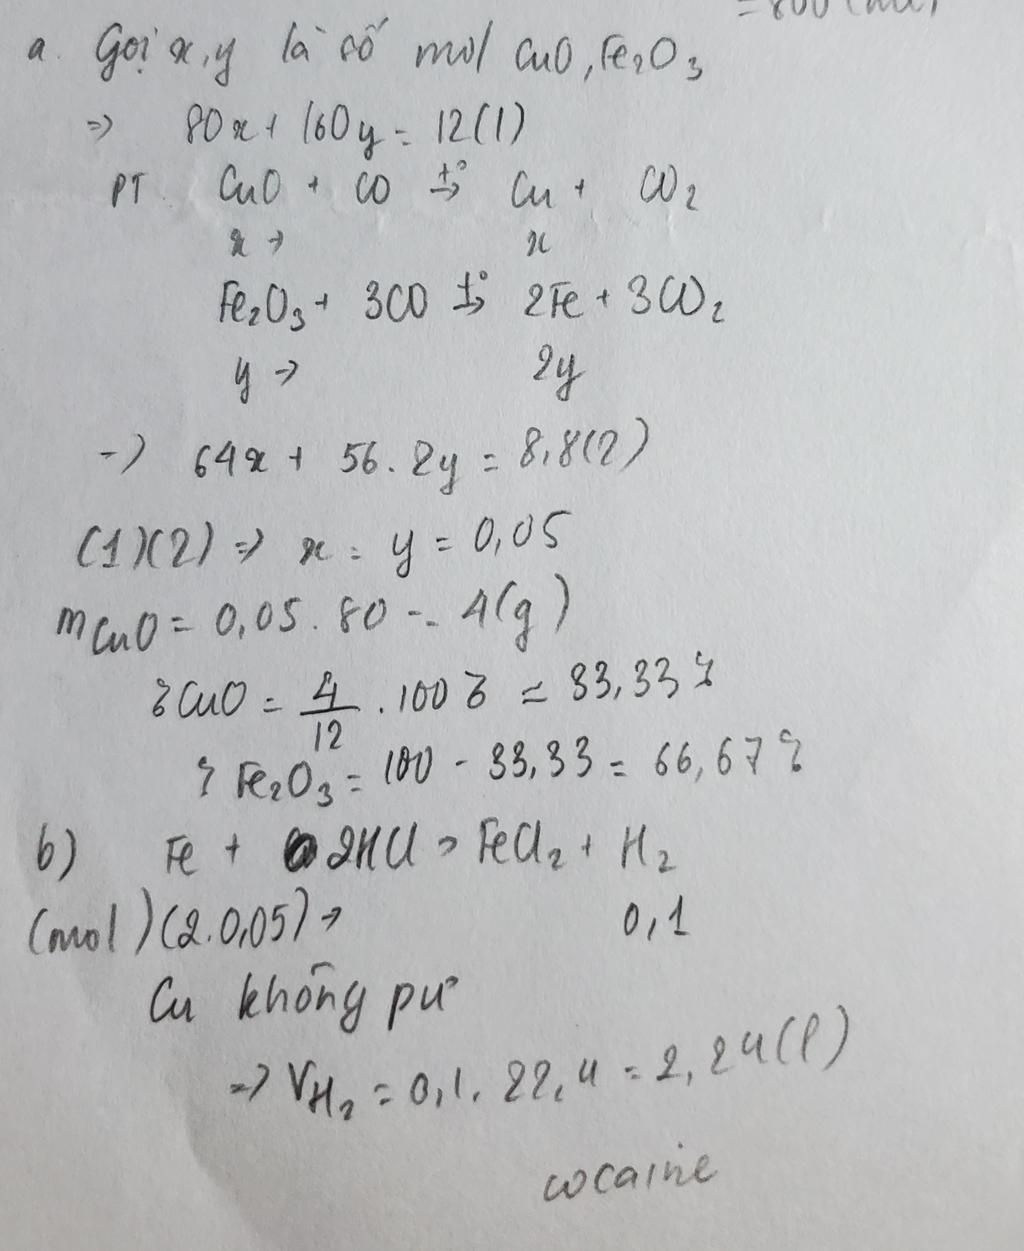 = 800 (ml)
a. Gọi x, y là số mol CuO, Fe₂O₃
=> 80x + 160y = 12 (1)
PT CuO + CO t°→ Cu + CO₂
x → x
Fe₂O₃ + 3CO t°→ 2Fe + 3CO₂
y → 2y
-> 64x + 56.2y = 8,8 (2)
(1)(2) => x = y = 0,05
mCuO = 0,05.80 = 4(g)
%CuO = 4/12 . 100% = 33,33%
% Fe₂O₃ = 100 - 33,33 = 66,67%
b) Fe + 2HCl → FeCl₂ + H₂
(mol) (2.0,05) → 0,1
Cu không pư
=> VH₂ = 0,1. 22,4 = 2,24(l)
cocaine